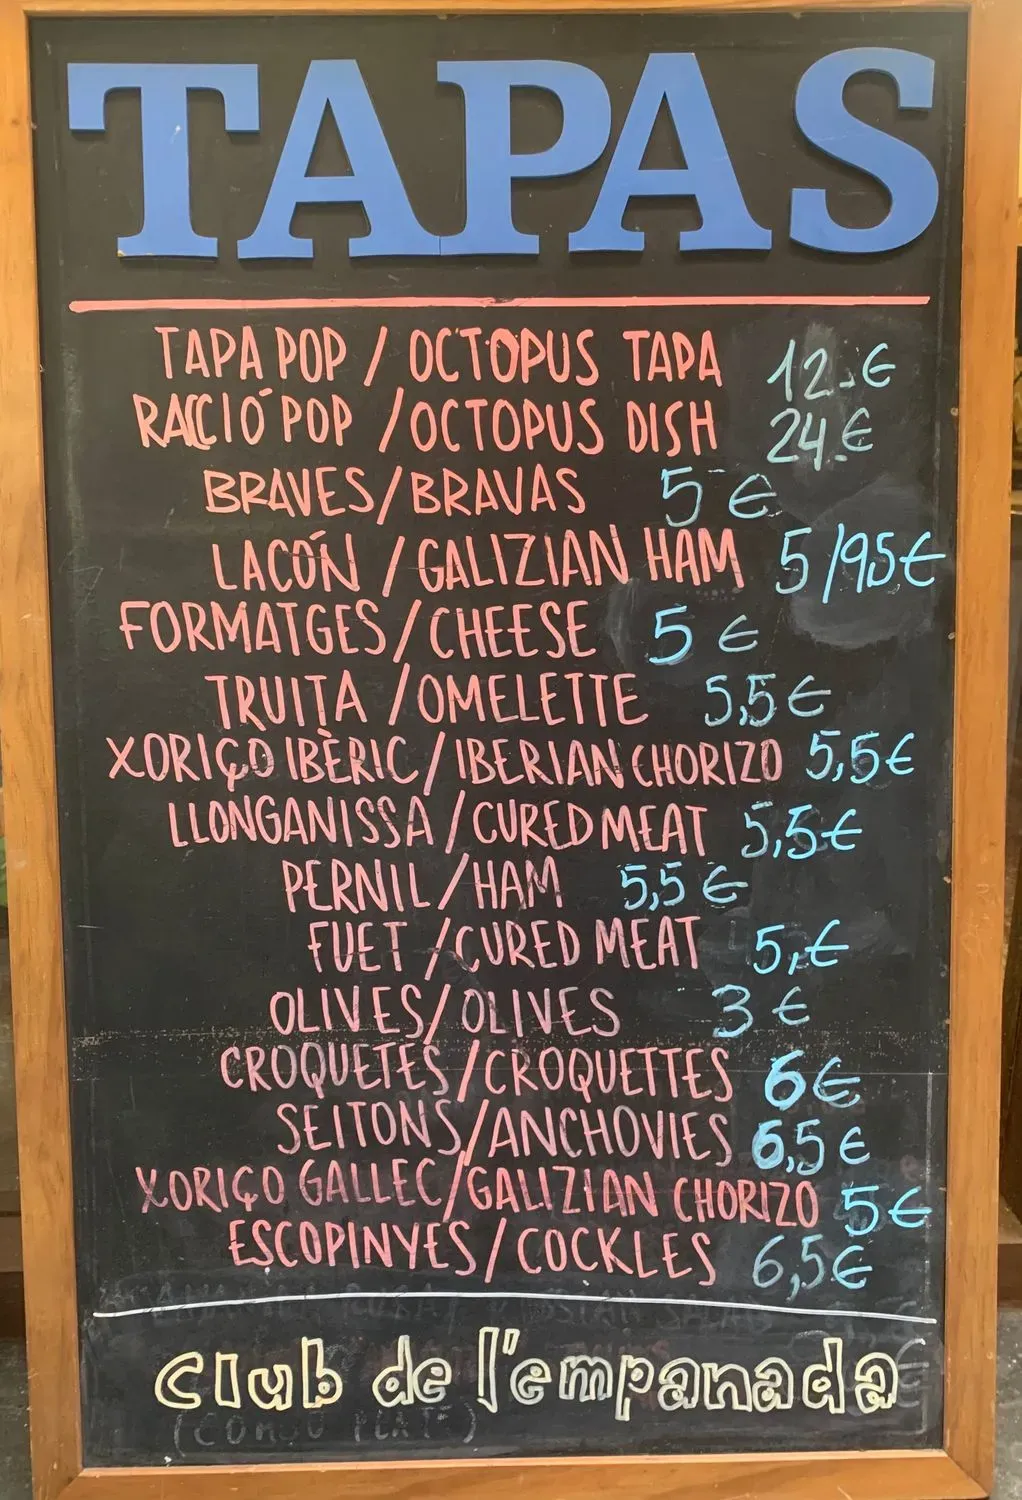 TAPAS
TAPA POP / OCTOPUS TAPA 12.€
RACCIÓ POP / OCTOPUS DISH 24.€
BRAVES/BRAVAS 5 €
LACÓN / GALIZIAN HAM 5/95€
FORMATGES/CHEESE 5 €
TRUITA / OMELETTE 5,5€
XORIÇO IBÈRIC/IBERIAN CHORIZO 5,5€
LLONGANISSA/CURED MEAT 5,5€
PERNIL/HAM 5,5€
FUET /CURED MEAT 5,€
OLIVES/OLIVES 3 €
CROQUETES/CROQUETTES 6€
SEITONS/ANCHOVIES 6,5€
XORIÇO GALLEC/GALIZIAN CHORIZO 5€
ESCOPINYES/COCKLES 6,5€
Club de l'empanada